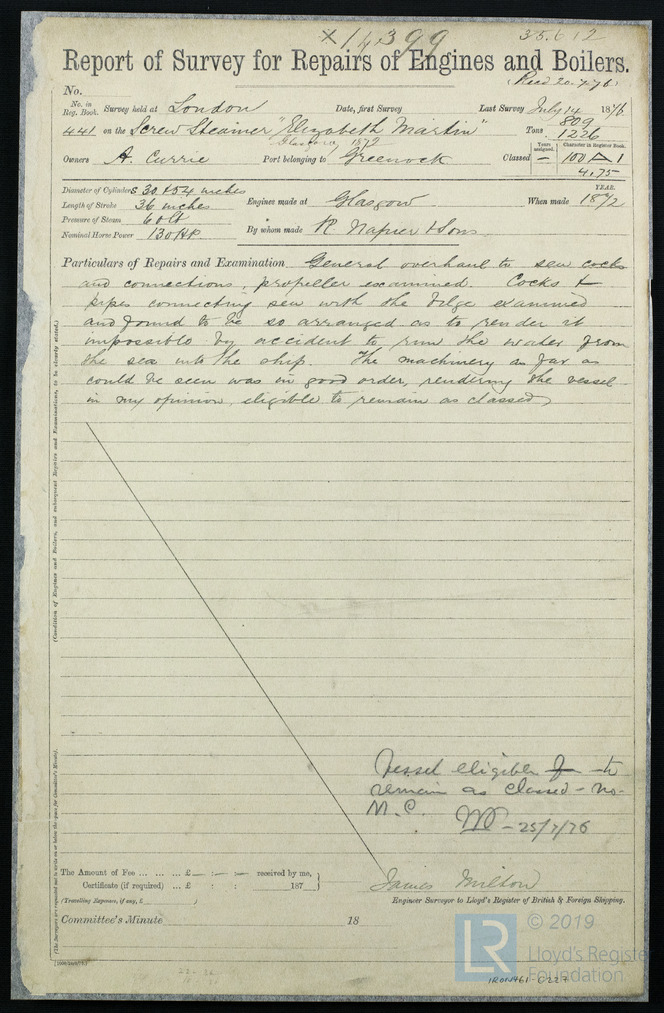 × 14399 35.6.12
Report of Survey for Repairs of Engines and Boilers.
(Recd 20.7.76)
No.
No. in Reg. Book. Survey held at London Date, first Survey Last Survey July 14 1876.
441 on the Screw Steamer "Elizabeth Martin" Tons 809 1226
Glasgow, 1872
Owners A. Currie Port belonging to Greenock Classed Years assigned. — Character in Register Book. 100 A 1
4,75
Diameter of Cylinders 30 & 54 inches
Length of Stroke 36 inches Engines made at Glasgow When made YEAR. 1872
Pressure of Steam 60 lb
Nominal Horse Power 130 HP. By whom made R Napier & Sons
Particulars of Repairs and Examination General overhaul to sea cocks
and connections; propeller examined. Cocks &
pipes connecting sea with the bilge examined
and found to be so arranged as to render it
impossible by accident to run the water from
the sea into the ship. The machinery as far as
could be seen was in good order, rendering the vessel
in my opinion, eligible to remain as classed
(Condition of Engines and Boilers, and subsequent Repairs and Examinations, to be clearly stated.)
Vessel eligible to
remain as classed – no
M.C.
25/7/76
The Amount of Fee ... ... ... £ : : received by me,
Certificate (if required) ... £ : : 187
(Travelling Expenses, if any, £ )
James Milton
Engineer Surveyor to Lloyd's Register of British & Foreign Shipping.
Committee's Minute 18
(The Surveyors are requested not to write on or below the space for Committee's Minute).
LR © 2019
Lloyd's Registe
Foundation
IRON461-0227